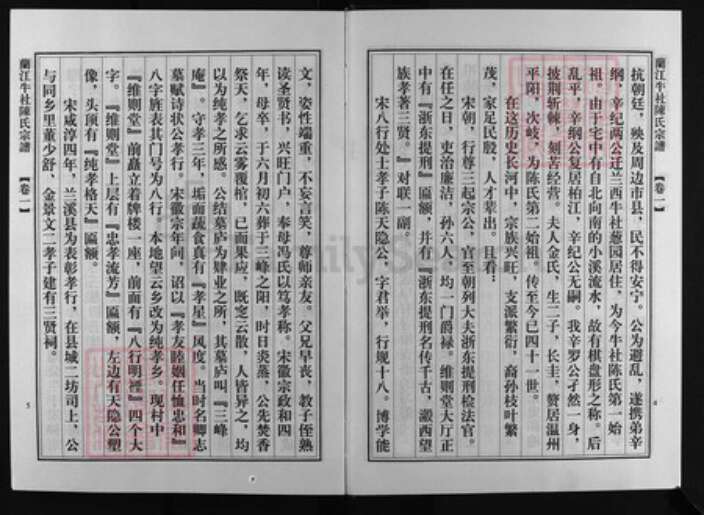 蘭江牛社陳氏宗譜
【卷一】
抗朝廷，殃及周边市县，民不得安宁。公为避乱，遂携弟辛
纲，辛纪两公迁兰西牛社葱园居住，为今牛社陈氏第一始
祖。由于宅中有自北向南的小溪流水，故有棋盘形之称。后
乱平，辛纲公复居柏江，辛纪公无嗣。我辛罗公孑然一身，
披荆斩棘，刻苦经营。夫人金氏，生二子，长圭，赘居温州
平阳，次岐，为陈氏第二始祖。传至今已四十一世。
在这历史长河中，宗族兴旺，支派繁衍，裔孙枝叶繁
茂，家足民殷，人才辈出。且看：
宋朝，行尊三起宗公，官至朝列大夫浙东提刑检法官。
在任之日，吏治廉洁，孙六人，均一门爵禄。维则堂大厅正
中有『浙东提刑』匾额，并有『浙东提刑名传千古，瀫西望
族孝著三贤。』对联一副。
宋八行处士孝子陈天隐公，字君举，行规十八。博学能
4
文，姿性端重，不妄言笑，尊师亲友。父兄早丧，教子侄熟
读圣贤书，兴旺门户，奉母冯氏以笃孝称。宋徽宗政和四
年，母卒，于六月初六葬于三峰之阳，时日炎蒸，公先焚香
祭天，乞求云雾覆棺，已而果应，既窆云散，人皆异之，均
以为纯孝之所感。公结墓庐为肄业之所，其墓庐叫『三峰
庵』。守孝三年，垢面疏食真有『孝星』风度。当时名卿志
墓赋诗状公孝行。宋徽宗年间，诏以『孝友睦姻任恤忠和』
八字旌表其门号为八行。本地望云乡改为纯孝乡。现村中
『维则堂』前矗立着牌楼一座，前面有『八行明禋』四个大
字。『维则堂』上层有『忠孝流芳』匾额，左边有天隐公塑
像，头顶有『纯孝格天』匾额。
宋咸淳四年，兰溪县为表彰孝行，在县城二坊司上，公
与同乡里董少舒、金景文二孝子建有三贤祠。
蘭江牛社陳氏宗譜
【卷一】
5